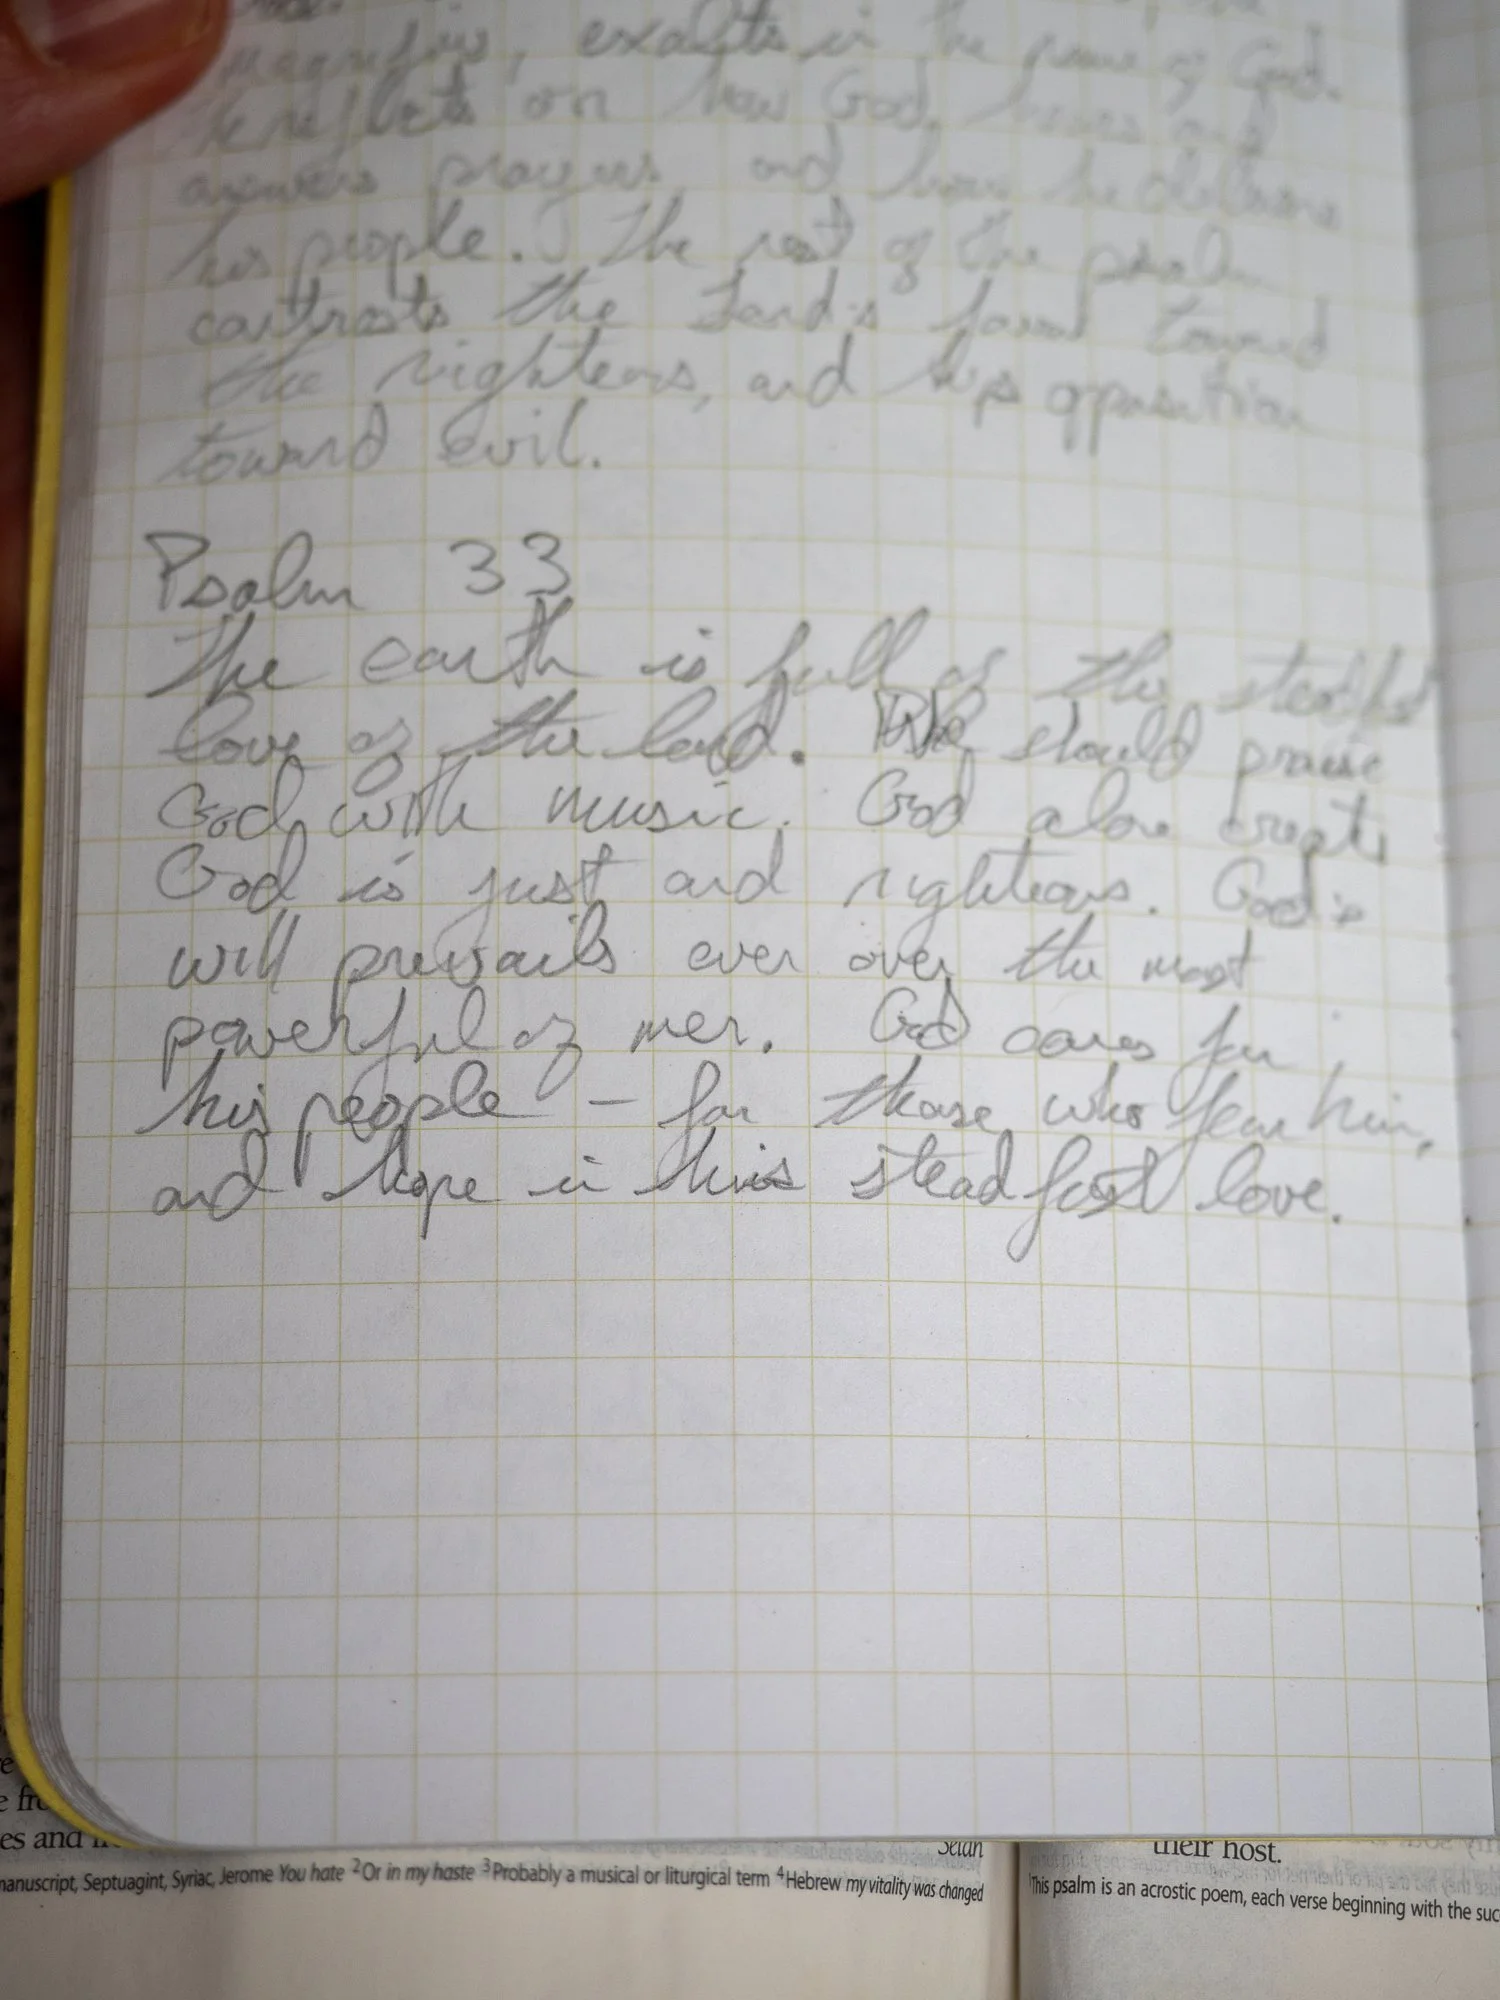 magnifies, exalts in the name of God.
He reflects on how God hears and
answers prayers, and how he delivers
his people. The rest of the psalm
contrasts the Lord's favor toward
the righteous, and his opposition
toward evil.
Psalm 33
The earth is full of the steadfast
love of the Lord. We should praise
God with music. God alone creates
God is just and righteous. God's
will prevails even over the most
powerful of men. God cares for
his people - for those who fear him,
and hope in his steadfast love.
e
e fro
es and
Selah
their host.
manuscript, Septuagint, Syriac, Jerome You hate 2 Or in my haste 3 Probably a musical or liturgical term 4 Hebrew my vitality was changed
1 This psalm is an acrostic poem, each verse beginning with the suc